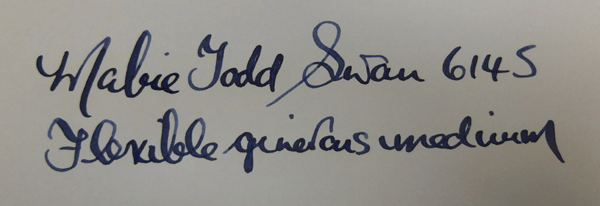 Mabie Todd Swan 6145
Flexible generous medium